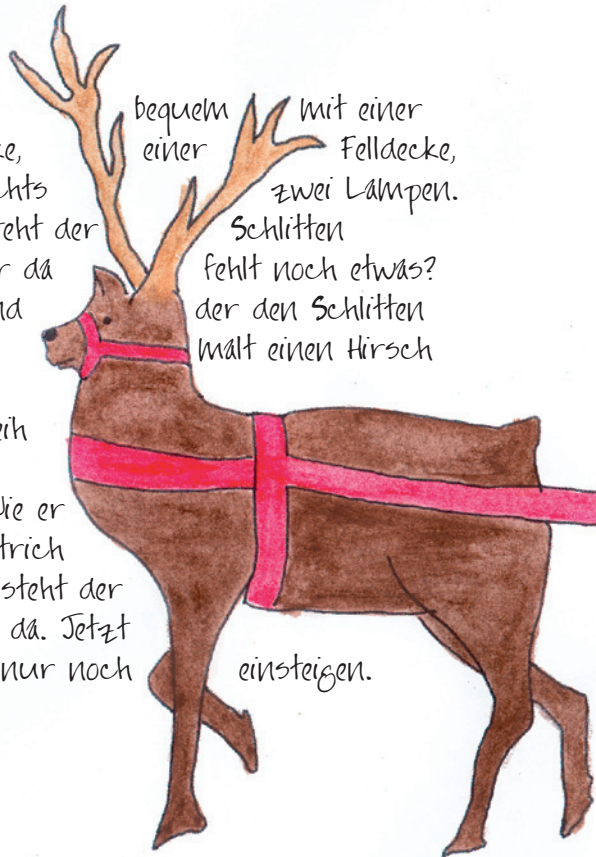 bequem mit einer
ke, einer Felldecke,
chts zwei Lampen.
teht der Schlitten
r da fehlt noch etwas?
nd der den Schlitten
malt einen Hirsch
eih
die er
trich
steht der
da. Jetzt
nur noch einsteigen.